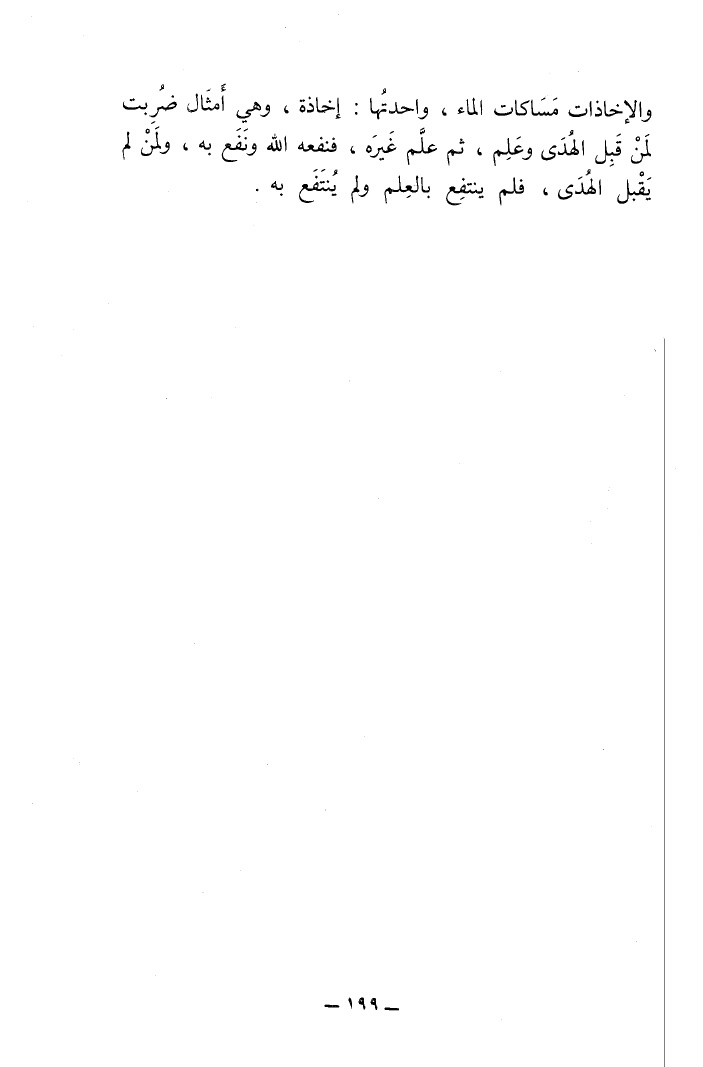 والإخاذات مَسَاكات الماء ، واحدتُها : إخاذة ، وهي أَمثَال ضُرِبت
لمَنْ قَبِل الهُدَى وعَلِم ، ثم علَّم غَيرَه ، فنفعه الله ونَفَع به ، ولمَنْ لم
يَقْبل الهُدَى ، فلم ينتفِع بالعِلم ولم يُنتَفَع به .
ـ ١٩٩ ـ